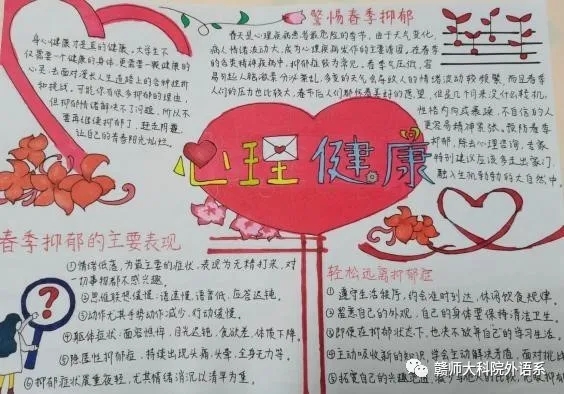 身心健康才是真的健康,大学生不
仅需要一个健康的身体,更需要一颗健康的
心灵,去面对漫长人生道路上的各种挫折
和挑战,可能你有很多抑郁的理由,
但抑郁情绪解决不了问题,所以不
要再继续抑郁了,赶走阴霾,
让自己的青春阳光灿烂。
警惕春季抑郁
春天是心理疾病患者最危险的季节,由于天气变化,
病人情绪波动大,成为心理疾病发作的主要诱因,在春季
的各类精神疾病中,抑郁症较为常见,春季气压低,容
易引起人脑激素分泌紊乱,多变的天气会导致人的情绪波动较频繁,而且春季
人们的压力也比较大,春节后人们都怀着美好的愿望,但是几个月来没什么转机,
性格内向或暴躁、不自信的人
更容易精神紧张。预防春季
抑郁,除去心理咨询,专家
特别建议应该多走出家门,
融入生机勃勃的大自然中。
心理健康
春季抑郁的主要表现
①情绪低落,为最主要的症状,表现为无精打采,对
一切事物都不感兴趣。
②思维联想缓慢,语速慢,语音低,应答迟钝。
③动作尤其手势动作减少,行动缓慢。
④躯体症状:面容憔悴,目光迟钝,食欲差,体质下降。
⑤隐匿性抑郁症,持续出现头痛、头晕、全身无力等。
⑥抑郁症状晨重夜轻,尤其情绪消沉以清早为重。
轻松远离抑郁症
①遵守生活秩序,约会准时到达,休闲饮食规律。
②留意自己的外观,自己的身体要保持清洁卫生。
③即使在抑郁状态下,也决不放弃自己的学习生活。
④主动吸收新的知识,学会主动解决矛盾,面对挑战
⑤拓宽自己的兴趣范围,
赣师大科院外语系